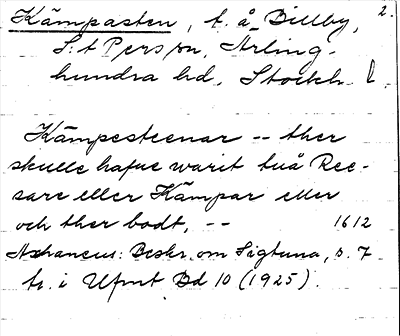 Kämpasten, t. å Billby, 2.
S:t Per s:n, Ärling-
hundra hd, Stockh. l.
Kämpesteenar -- ther
skulle hafue warit tuå Ree-
sare eller Kämpar eller
och ther bodt, -- 1612
Aschaneus: Beskr. om Sigtuna, s. 7
tr. i Ufmt Bd 10 (1925).